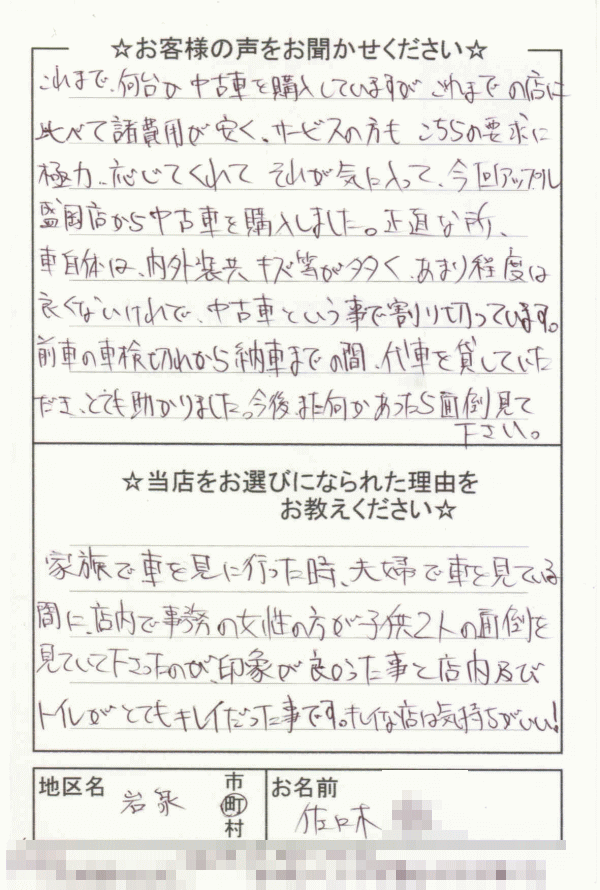 ☆お客様の声をお聞かせください☆
これまで、何台か中古車を購入していますが これまでの店に
比べて諸費用が安く、サービスの方も こちらの要求に
極力、応じてくれて それが気に入って、今回アップル
盛岡店から中古車を購入しました。正直な所、
車自体は、内外装共、キズ等が多く、あまり程度は
良くないけれで、中古車という事で割り切っています。
前車の車検切れから納車までの間、代車を貸していた
だき、とても助かりました。今後、また何かあったら面倒見て
下さい。
☆当店をお選びになられた理由を
お教えください☆
家族で車を見に行った時、夫婦で車を見ている
間に、店内で事務の女性の方が子供2人の面倒を
見ていて下さったのが、印象が良かった事と店内及び
トイレがとてもキレイだった事です。キレイな店は気持ちがいい!
地区名 岩泉 市町村 お名前 佐々木